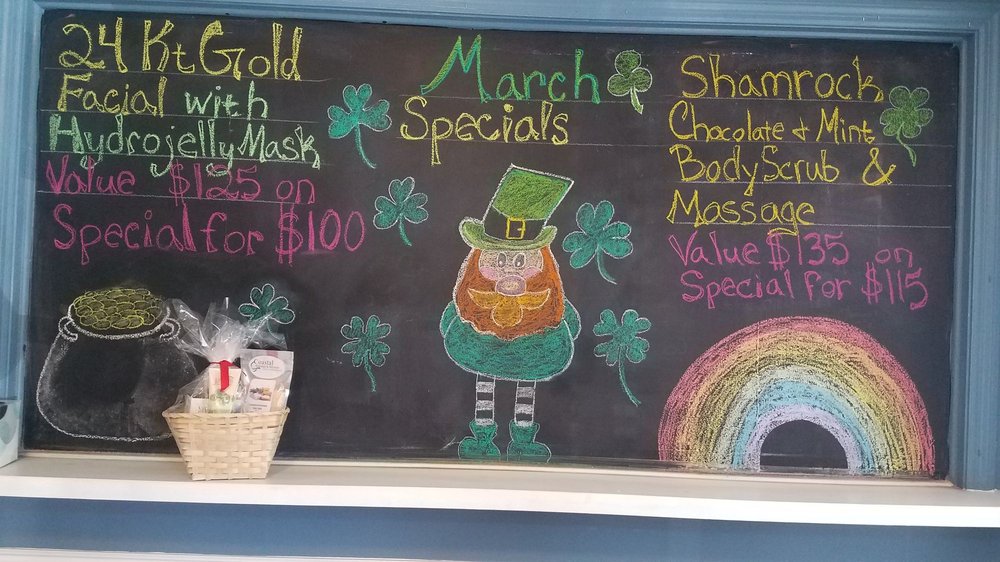 24 Kt Gold
Facial with
Hydrojelly Mask
Value $125 on
Special for $100
March
Specials
Shamrock
Chocolate & Mint
Body Scrub &
Massage
Value $135 on
Special for $115
Coastal